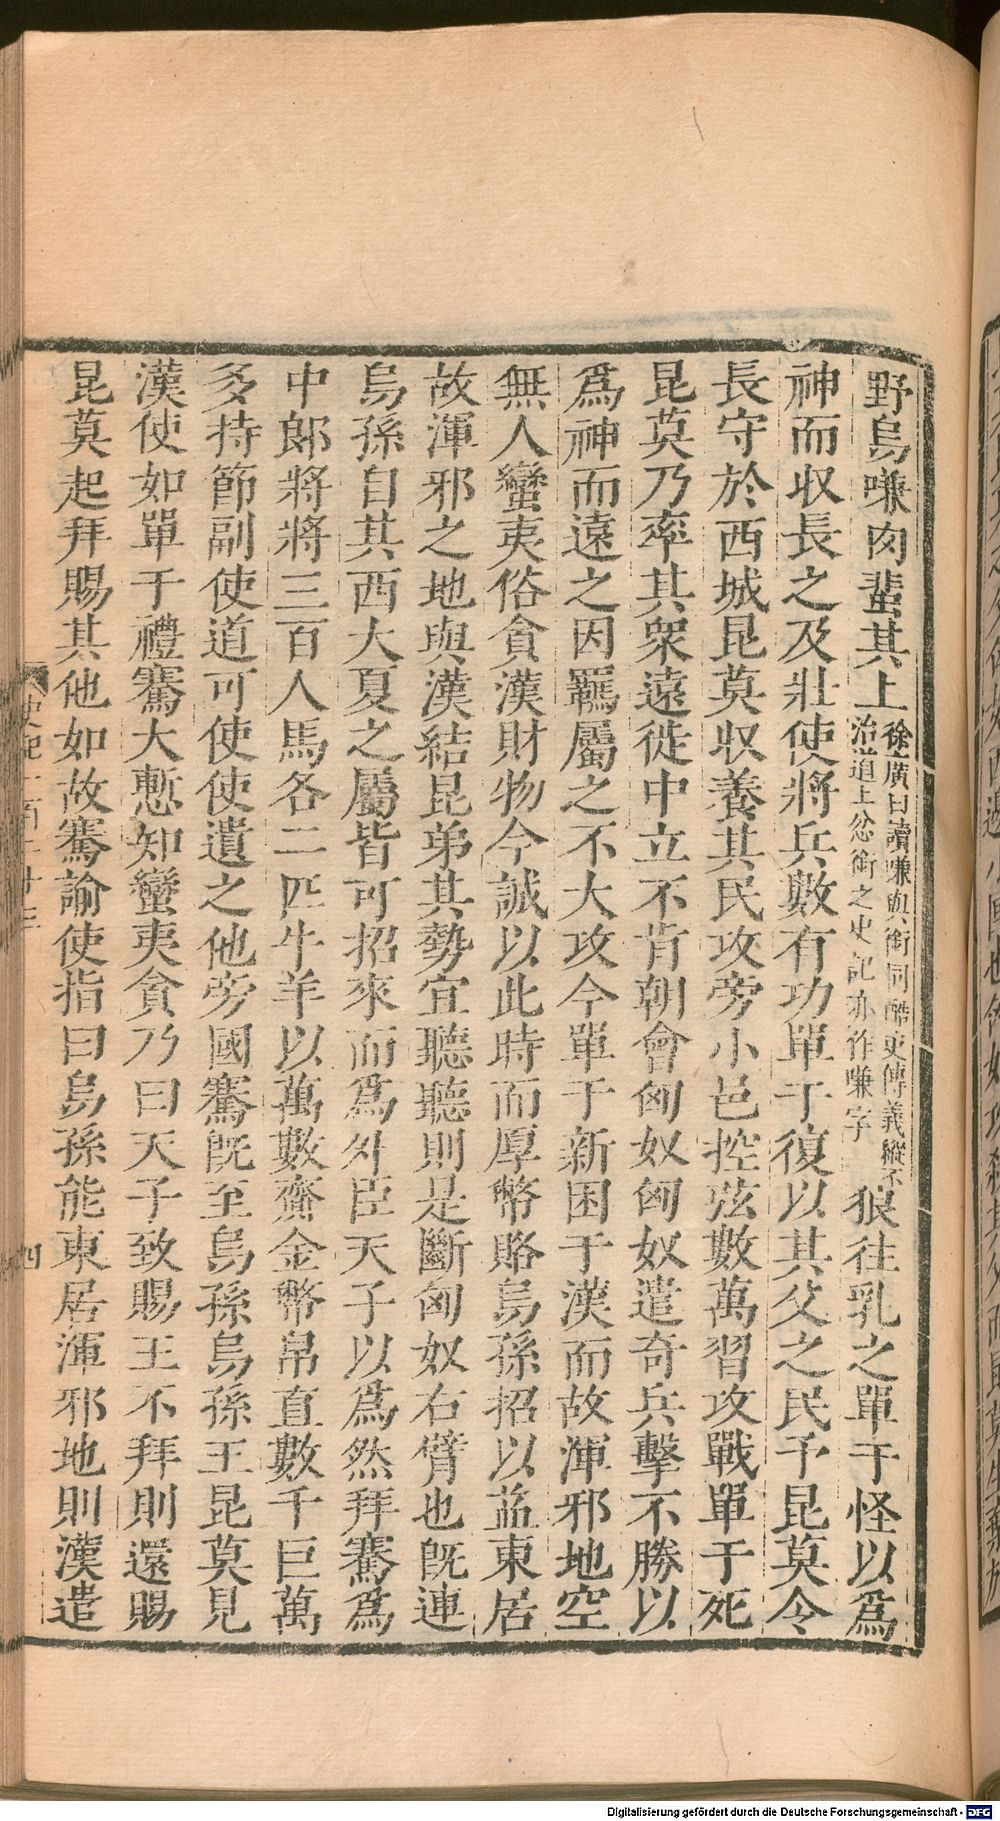 野鳥嗛肉蜚其上徐廣曰讀嗛與銜同酷吏傳義縱不治道上忿銜之史記亦作嗛字狼往乳之單于怪以爲
神而收長之及壯使將兵數有功單于復以其父之民予昆莫令
長守於西城昆莫收養其民攻旁小邑控弦數萬習攻戰單于死
昆莫乃率其眾遠徙中立不肯朝會匈奴匈奴遣奇兵擊不勝以
爲神而遠之因羈屬之不大攻今單于新困于漢而故渾邪地空
無人蠻夷俗貪漢財物今誠以此時而厚幣賂烏孫招以益東居
故渾邪之地與漢結昆弟其勢宜聽聽則是斷匈奴右臂也旣連
烏孫自其西大夏之屬皆可招來而爲外臣天子以爲然拜騫爲
中郎將將三百人馬各二匹牛羊以萬數齎金幣帛直數千巨萬
多持節副使道可使使遺之他旁國騫旣至烏孫烏孫王昆莫見
漢使如單于禮騫大慙知蠻夷貪乃曰天子致賜王不拜則還賜
昆莫起拜賜其他如故騫諭使指曰烏孫能東居渾邪地則漢遣
史記一百二十三
四
Digitalisierung gefördert durch die Deutsche Forschungsgemeinschaft - DFG